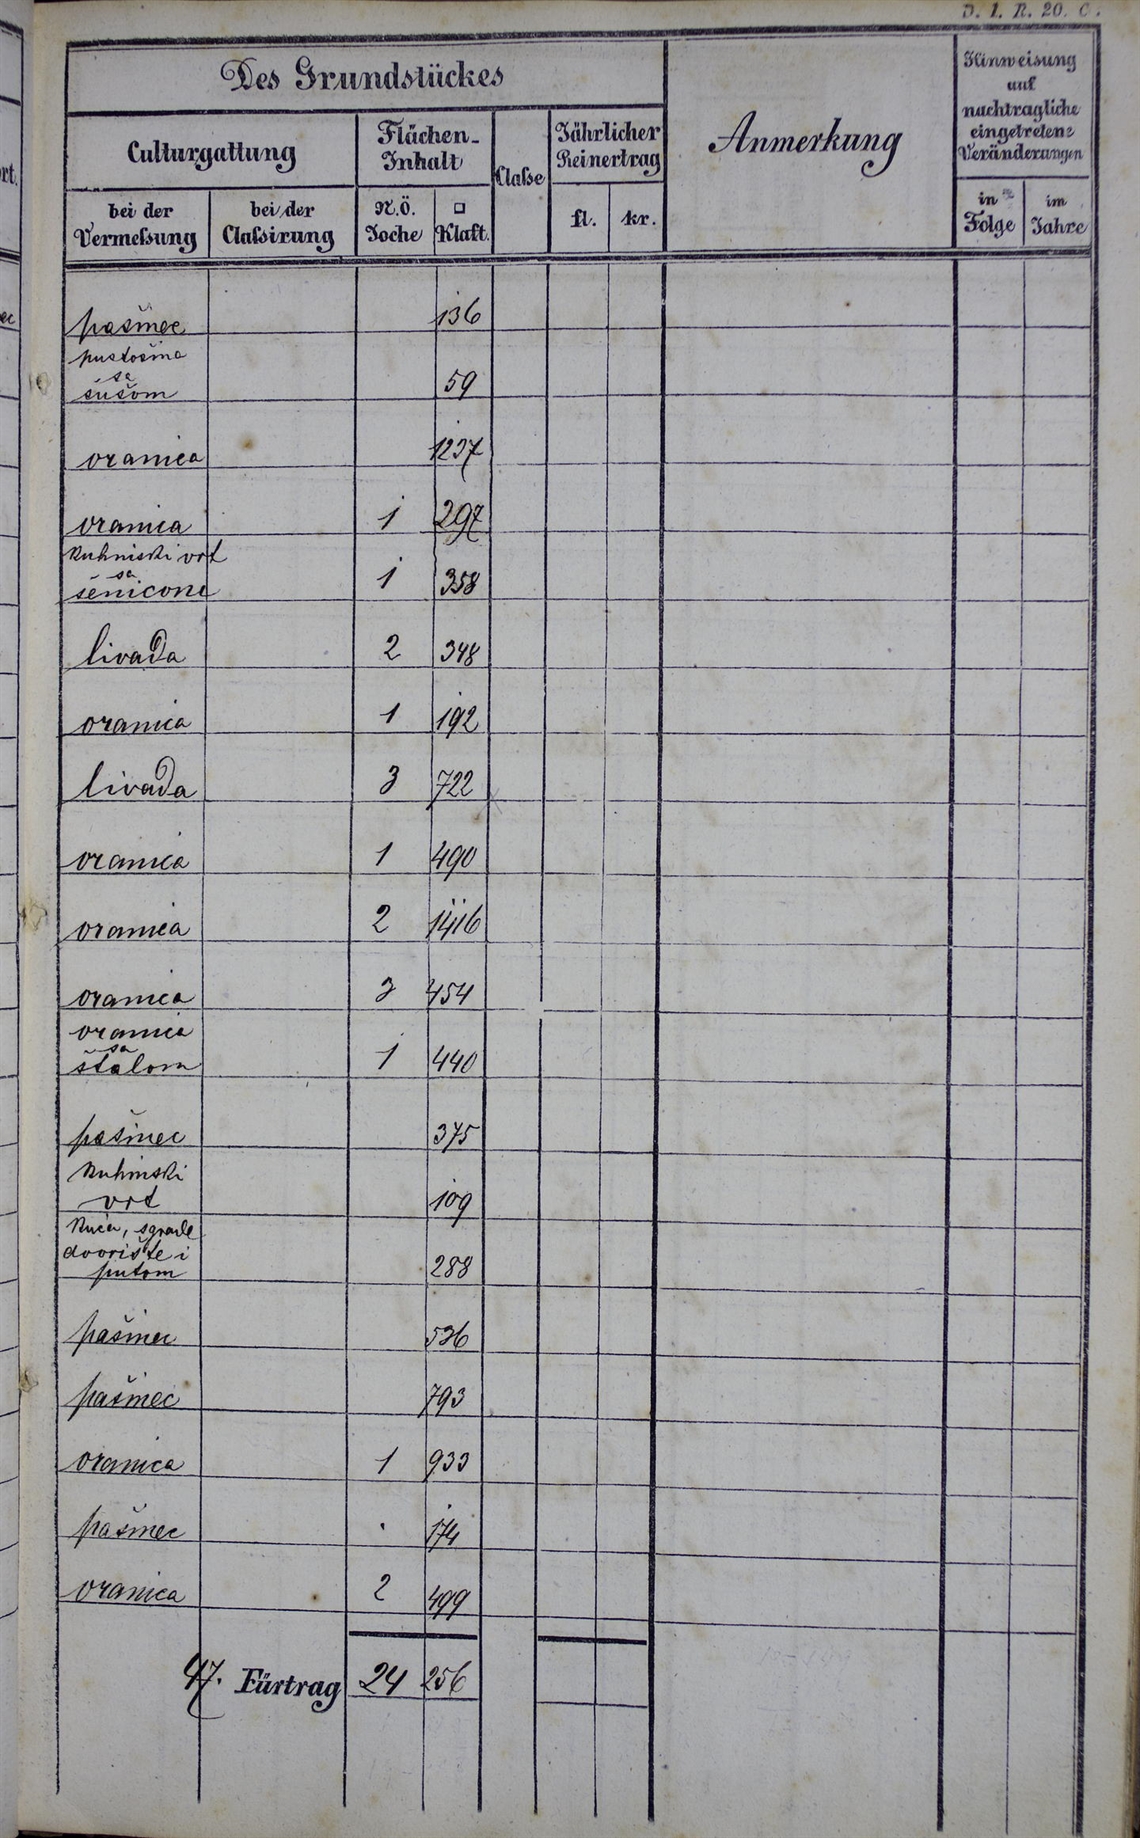 D. 1. R. 20. C.
Des Grundstückes
Culturgattung
Flächen-
Inhalt
Classe
Jährlicher
Reinertrag
Anmerkung
Hinweisung
auf
nachtragliche
eingetretene
Veränderungen
bei der
Vermessung
bei der
Classirung
N.Ö.
Joche
□
Klaft.
fl.
kr.
in
Folge
im
Jahre
pašnec 136
pustošina
sa
šušom 59
oranica 1237
oranica 1 297
kuhinski vrt
sa
1 358
livada 2 348
oranica 1 192
livada 3 722
oranica 1 490
oranica 2 1416
oranica 3 454
oranica
sa
štalom 1 440
pašnec 375
kuhinski
vrt 109
kuća, sgrade
dvorište i
putom 288
pašinec 536
pašinec 793
oranica 1 933
pašnec . 174
oranica 2 499
47. Fürtrag 24 256